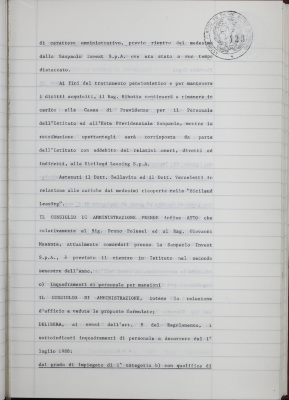 di carattere amministrativo, previo rientro del medesimo
dalla Sanpaolo Invest S.p.A. ove era stato a suo tempo
distaccato.
Ai fini del trattamento pensionistico e per mantenere
i diritti acquisiti, il Rag. continuerà a rimanere in
carico alla Cassa di Previdenza per il Personale
dell'Istituto ed all'Ente Previdenziale Sanpaolo, mentre la
retribuzione spettantegli sarà corrisposta da parte
dell'Istituto con addebito dei relativi oneri, diretti ed
indiretti, alla Leasing S.p.A.
Astenuti il Dott. e il Dott. in
relazione alle cariche dai medesimi ricoperte nella
Leasing".
IL CONSIGLIO DI AMMINISTRAZIONE PRENDE infine ATTO che
relativamente al Sig. Bruno e al Rag. Giovanni
attualmente comandati presso la Sanpaolo Invest
S.p.A., è previsto il rientro in Istituto nel secondo
semestre dell'anno.
c) inquadramenti di personale per mansioni
IL CONSIGLIO DI AMMINISTRAZIONE, intesa la relazione
d'ufficio e vedute le proposte formulate;
DELIBERA, ai sensi dell'art. 8 del Regolamento, i
sottoindicati inquadramenti di personale a decorrere dal 1°
luglio 1988:
dal grado di Impiegato di 1^ categoria b) con qualifica di